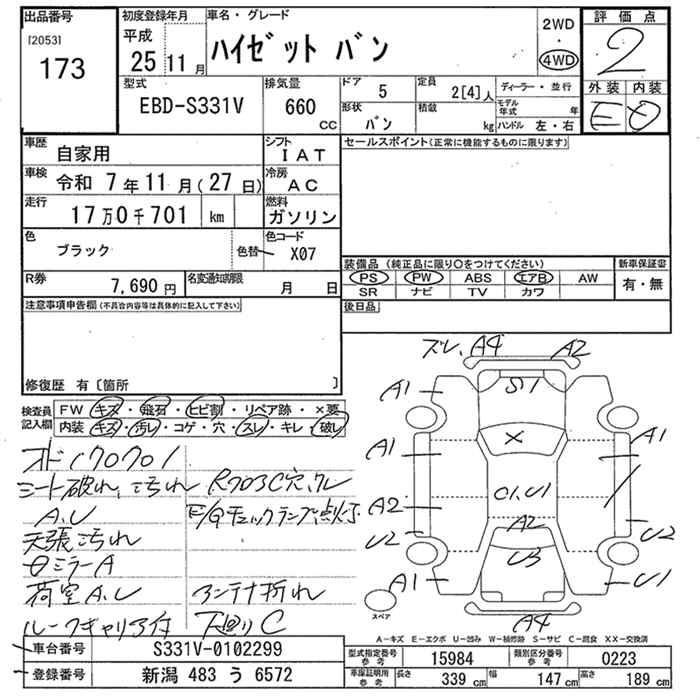 出品番号
[2053]
173
初度登録年月
平成
25 11 月
車名・グレード
ハイゼット バン
2WD
・
4WD
評価点
2
外装 内装
E D
型式
EBD-S331V
排気量
660 CC
ドア 5
定員 2[4]人
ディーラー・並行
モデル年式 年
形状 バン
積載 kg
ハンドル 左・右
車歴 自家用
シフト IAT
車検 令和 7年 11月(27日)
冷房 AC
走行 17万0千701 km
燃料 ガソリン
色 ブラック
色替
色コード X07
R券 7,690 円
名変通知期限 月 日
セールスポイント(正常に機能するものに限ります)
装備品(純正品に限り〇をつけてください)
新車保証書
PS PW ABS エアB AW
SR ナビ TV カワ
有・無
後日品
注意事項申告欄(不具合内容等は具体的に記入して下さい)
修復歴 有〔箇所 〕
検査員記入欄
FW キズ・飛石・ヒビ割・リペア跡・×要
内装 キズ・汚れ・コゲ・穴・スレ・キレ・破レ
オド170701
シート破れ、汚れ
A.U
天張汚れ
ミラーA
荷室A.U
ルーフキャリア付
E/Gチェックランプ点灯
アンテナ折れ
下廻りC
ズレ、A4 A2
A1 S1
A1 X A1
A2 C1.U1
U2 A2 U2
U3
A1 U1
A4
スペア
A-キズ E-エクボ U-凹み W-補修跡 S-サビ C-腐食 XX-交換済
車台番号 S331V-0102299
登録番号 新潟 483 う 6572
型式指定番号 参考 15984
類別区分番号 参考 0223
車庫証明用 参考 長さ 339 cm 幅 147 cm 高さ 189 cm